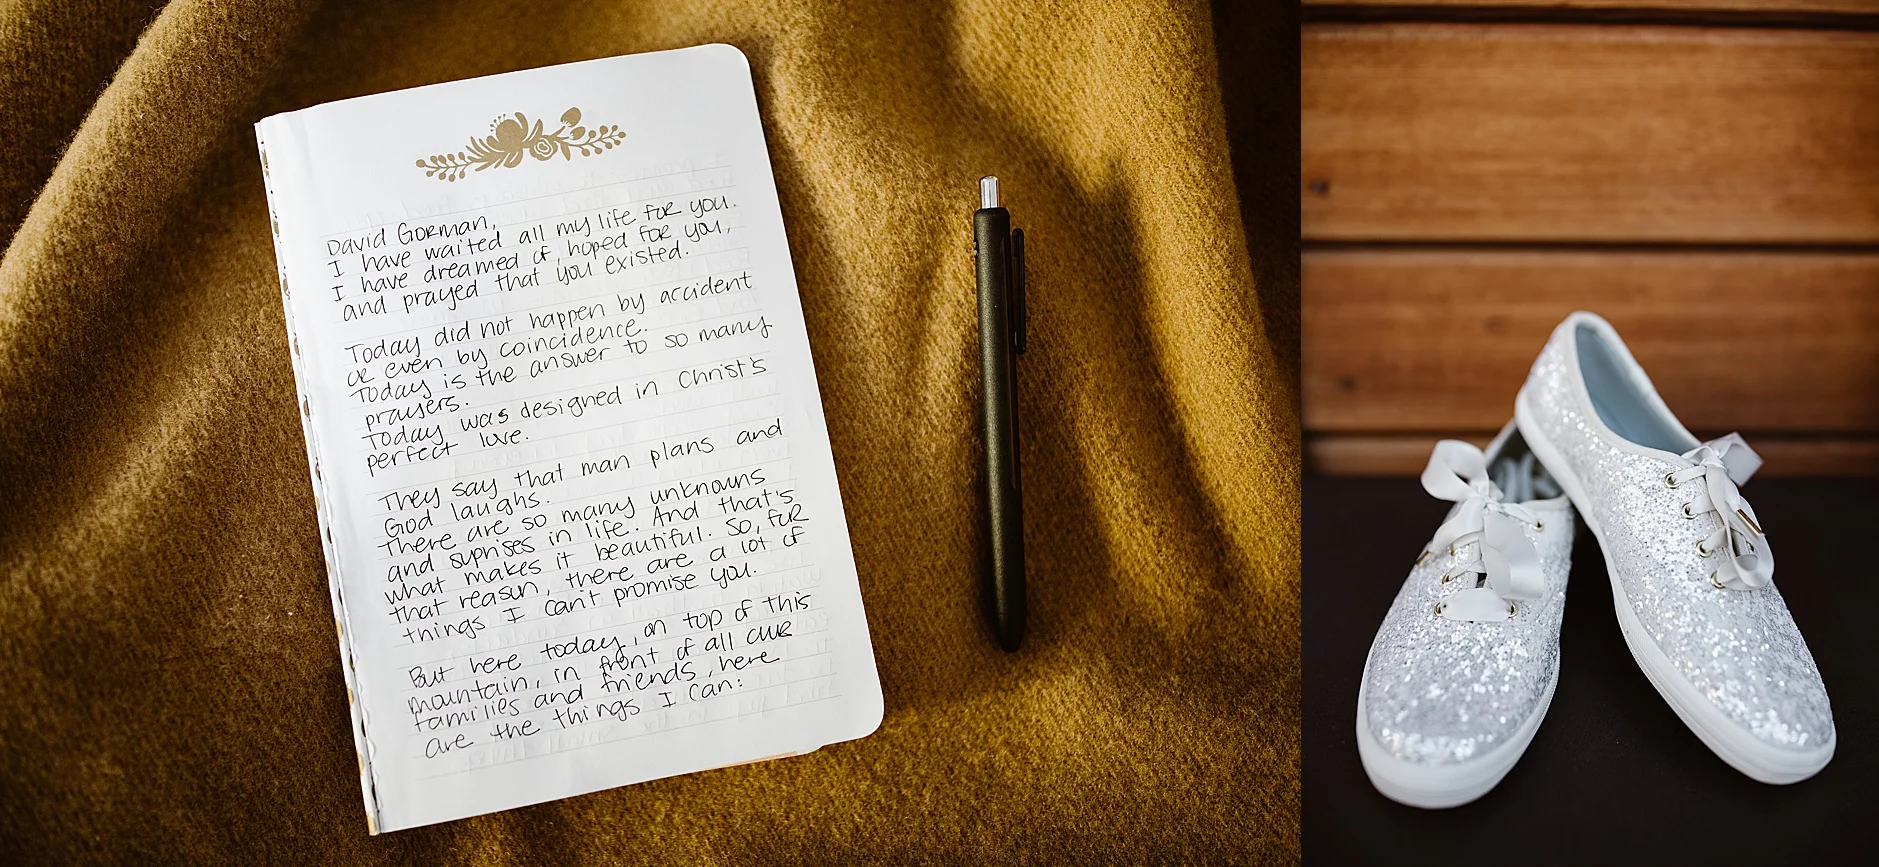 David Gorman,
I have waited all my life for you.
I have dreamed of, hoped for you,
and prayed that you existed.
Today did not happen by accident
or even by coincidence.
Today is the answer to so many
prayers.
Today was designed in Christ's
perfect love.
They say that man plans and
God laughs.
There are so many unknowns
and suprises in life. And that's
what makes it beautiful. So, for
that reason, there are a lot of
things I can't promise you.
But here today, on top of this
mountain, in front of all our
families and friends, here
are the things I can: